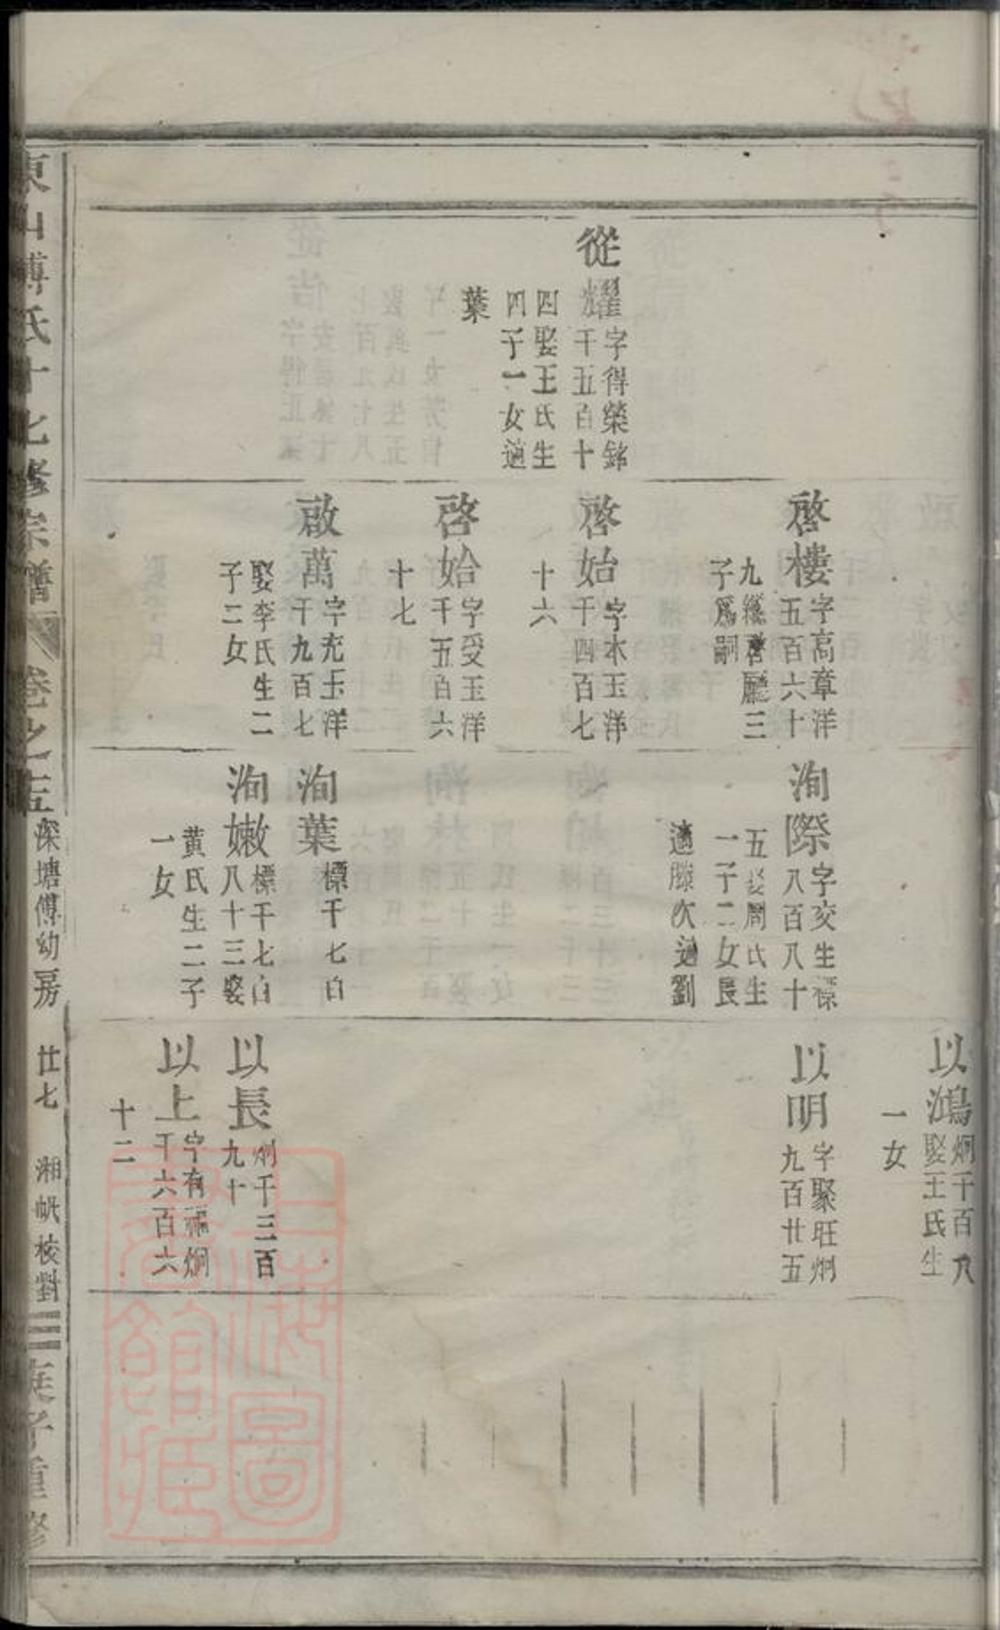 從耀
字得榮銘
千五百十
四娶王氏生
四子一女適
葉
啓樓
字高章洋
五百六十
九繼啓廳三
子爲嗣
啓始
字木玉洋
千四百七
十六
啓始
字受玉洋
千五百六
十七
啟萬
字充玉洋
千九百七
娶李氏生二
子二女
洵際
字交生標
八百八十
五娶周氏生
一子二女長
適滕次適劉
洵葉
標千七百
洵嫩
標千七百
八十三娶
黄氏生二子
一女
以鴻
炯千百八
娶王氏生
一女
以明
字聚旺炯
九百廿五
以長
炯千三百
九十
以上
字有 炯
千六百六
十二
東山傅氏十七修宗譜
卷之五
深塘傅幼房
廿七
湘帆校對
庚子重修
上海圖書館藏